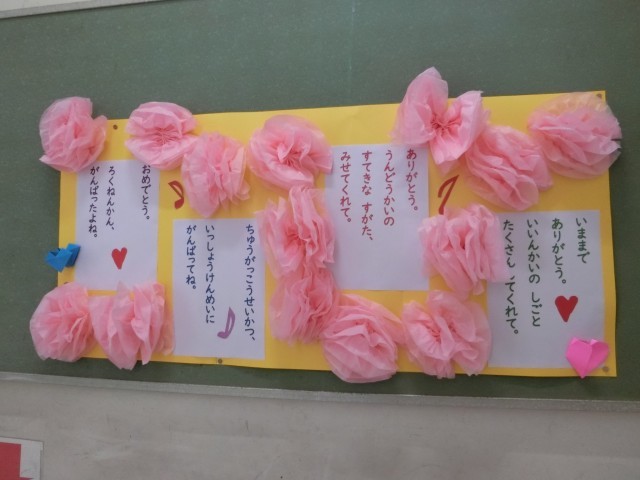 いままで
ありがとう。
いいんかいの しごと
たくさん してくれて。
ありがとう。
うんどうかいの
すてきな すがた、
みせてくれて。
ちゅうがっこうせいかつ、
いっしょうけんめいに
がんばってね。
おめでとう。
ろくねんかん、
がんばったよね。